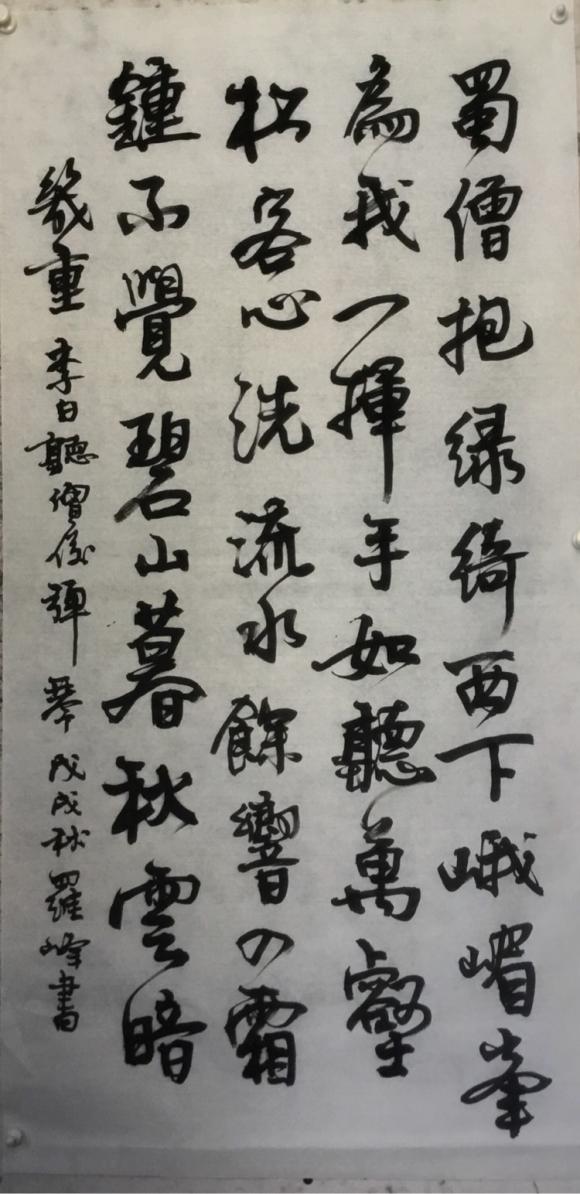 蜀僧抱綠綺西下峨嵋峯
為我一揮手如聽萬壑
松客心洗流水餘響入霜
鍾不覺碧山暮秋雲暗
幾重 李白聽僧俊彈琴 戊戌秋羅峰書